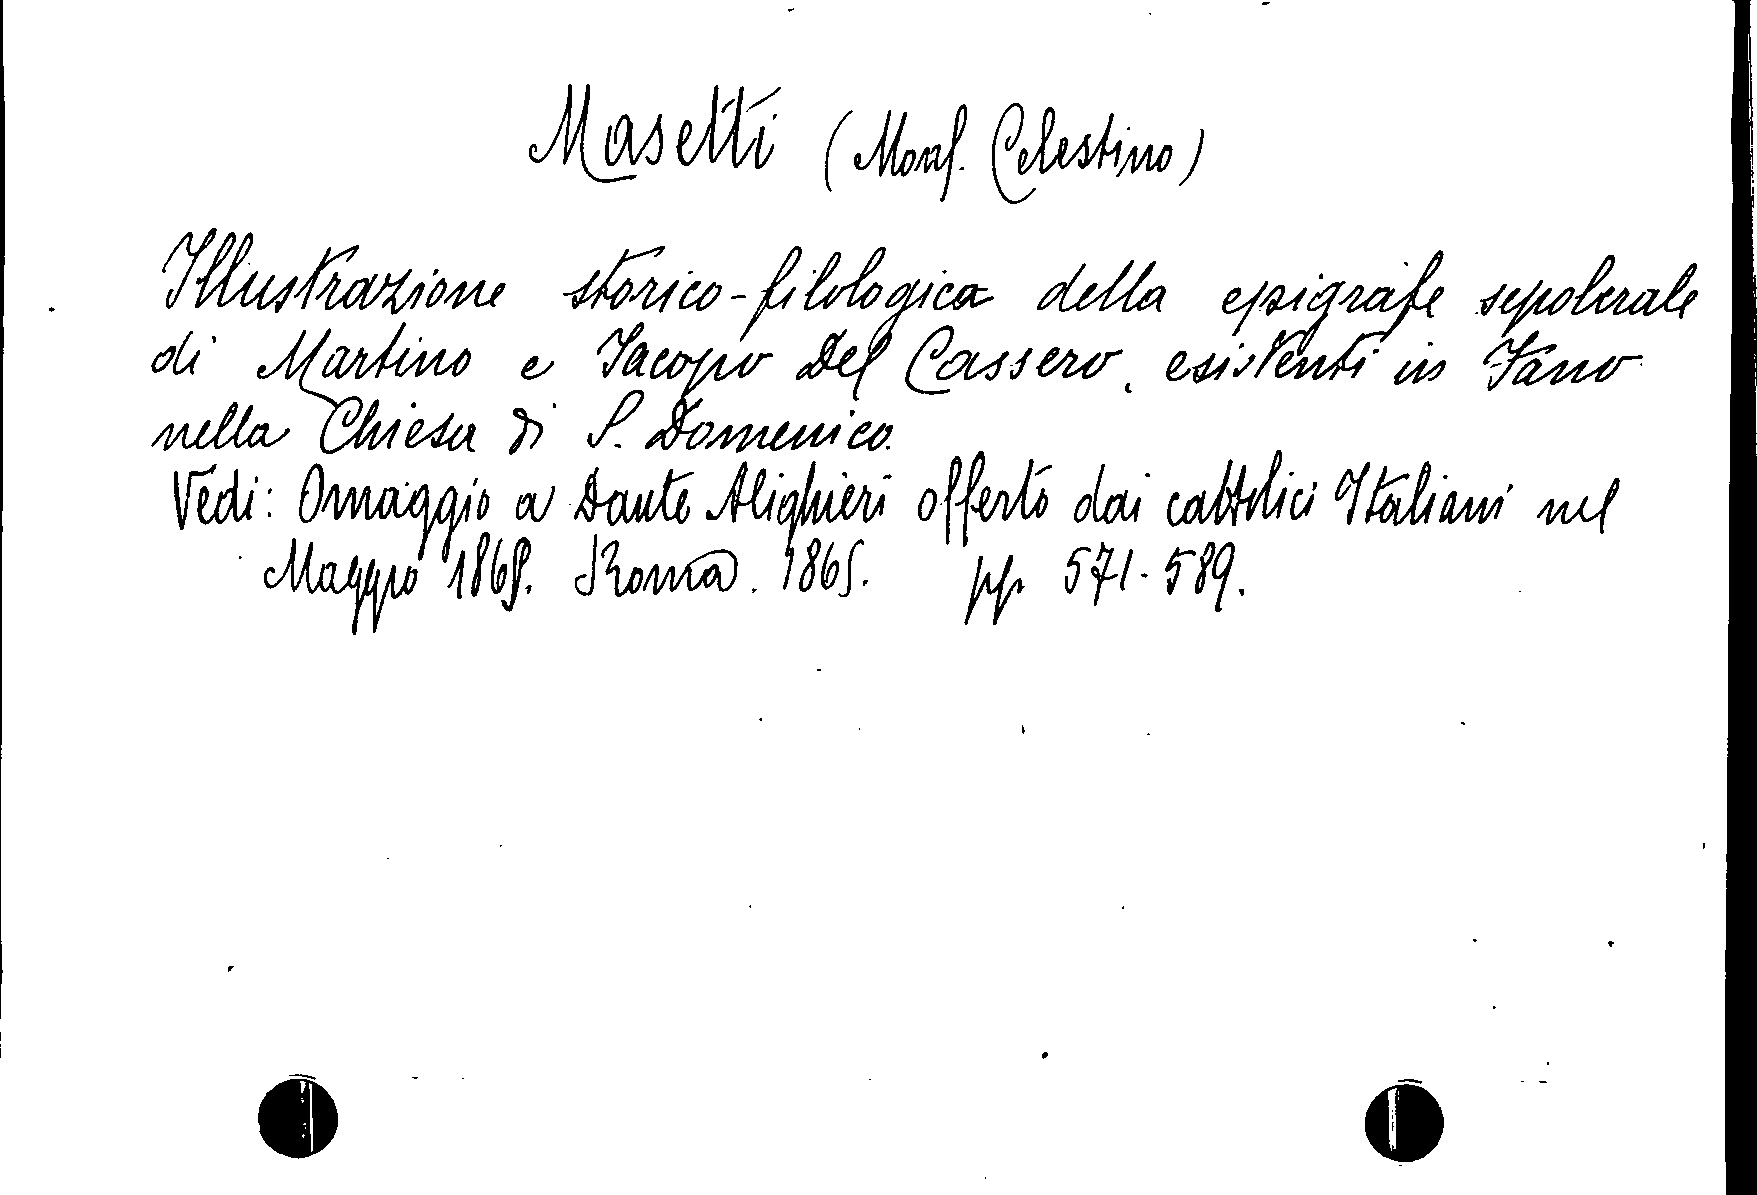 Masetti (Mons. Celestino)
Illustrazione storico-filologica della epigrafe sepolcrale
di Martino e Jacopo Del Cassero, esistenti in Fano
nella Chiesa di S. Domenico.
Vedi: Omaggio a Dante Alighieri offerto dai cattolici Italiani nel
Maggio 1865. Roma. 1865. pp. 571-589.